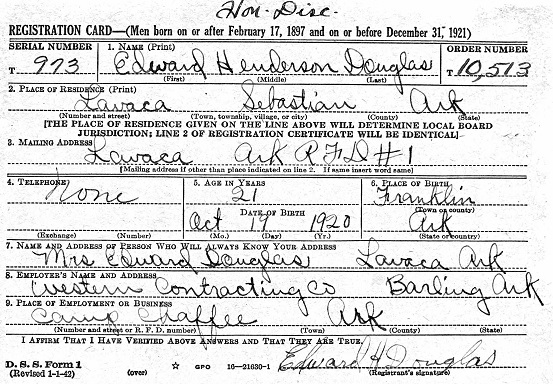 Hon. Disc.
REGISTRATION CARD—(Men born on or after February 17, 1897 and on or before December 31, 1921)
SERIAL NUMBER 1. NAME (Print) ORDER NUMBER
T 973 Edward Henderson Douglas T 10,513
(First) (Middle) (Last)
2. PLACE OF RESIDENCE (Print)
Lavaca Sebastian Ark
(Number and street) (Town, township, village, or city) (County) (State)
[THE PLACE OF RESIDENCE GIVEN ON THE LINE ABOVE WILL DETERMINE LOCAL BOARD
JURISDICTION; LINE 2 OF REGISTRATION CERTIFICATE WILL BE IDENTICAL]
3. MAILING ADDRESS
Lavaca Ark R F D #1
[Mailing address if other than place indicated on line 2. If same insert word same]
4. TELEPHONE 5. AGE IN YEARS 6. PLACE OF BIRTH
none 21 Franklin
DATE OF BIRTH (Town or county)
Oct 19 1920 Ark
(Exchange) (Number) (Mo.) (Day) (Yr.) (State or country)
7. NAME AND ADDRESS OF PERSON WHO WILL ALWAYS KNOW YOUR ADDRESS
Mrs Edward Douglas Lavaca Ark
8. EMPLOYER'S NAME AND ADDRESS
Western Contracting Co Barling Ark
9. PLACE OF EMPLOYMENT OR BUSINESS
Camp Chaffee Ark
(Number and street or R. F. D. number) (Town) (County) (State)
I AFFIRM THAT I HAVE VERIFIED ABOVE ANSWERS AND THAT THEY ARE TRUE.
D. S. S. Form 1
(Revised 1-1-42) (over) ☆ GPO 16—21630-1 Edward H Douglas
(Registrant's signature)